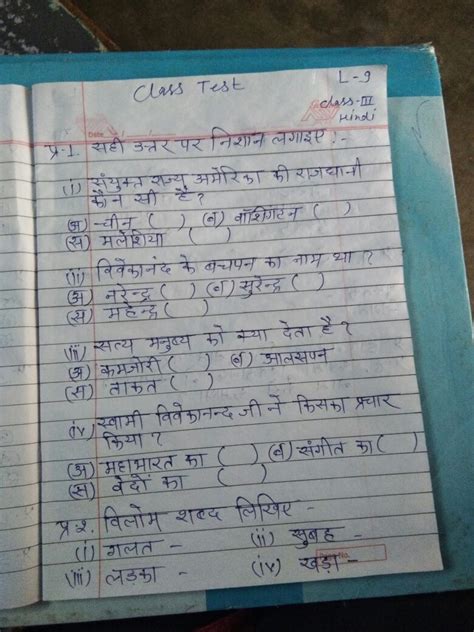 Class Test
L-9
class-III
Hindi
Date
प्र-1. सही उत्तर पर निशान लगाइए :-
(i) संयुक्त राज्य अमेरिका की राजधानी
कौन सी है?
(अ) चीन ( ) (ब) वाॅशिंगटन ( )
(स) मलेशिया ( )
(ii) विवेकानंद के बचपन का नाम था?
(अ) नरेन्द्र ( ) (ब) सुरेन्द्र ( )
(स) महेन्द्र ( )
(iii) सत्य मनुष्य को क्या देता है?
(अ) कमजोरी ( ) (ब) आलसपन
(स) ताकत ( )
(iv) स्वामी विवेकानन्द जी ने किसका प्रचार
किया?
(अ) महाभारत का ( ) (ब) संगीत का ( )
(स) वेदों का ( )
प्र-2. विलोम शब्द लिखिए-
(i) गलत - (ii) सुबह -
(iii) लड़का - (iv) खड़ा -